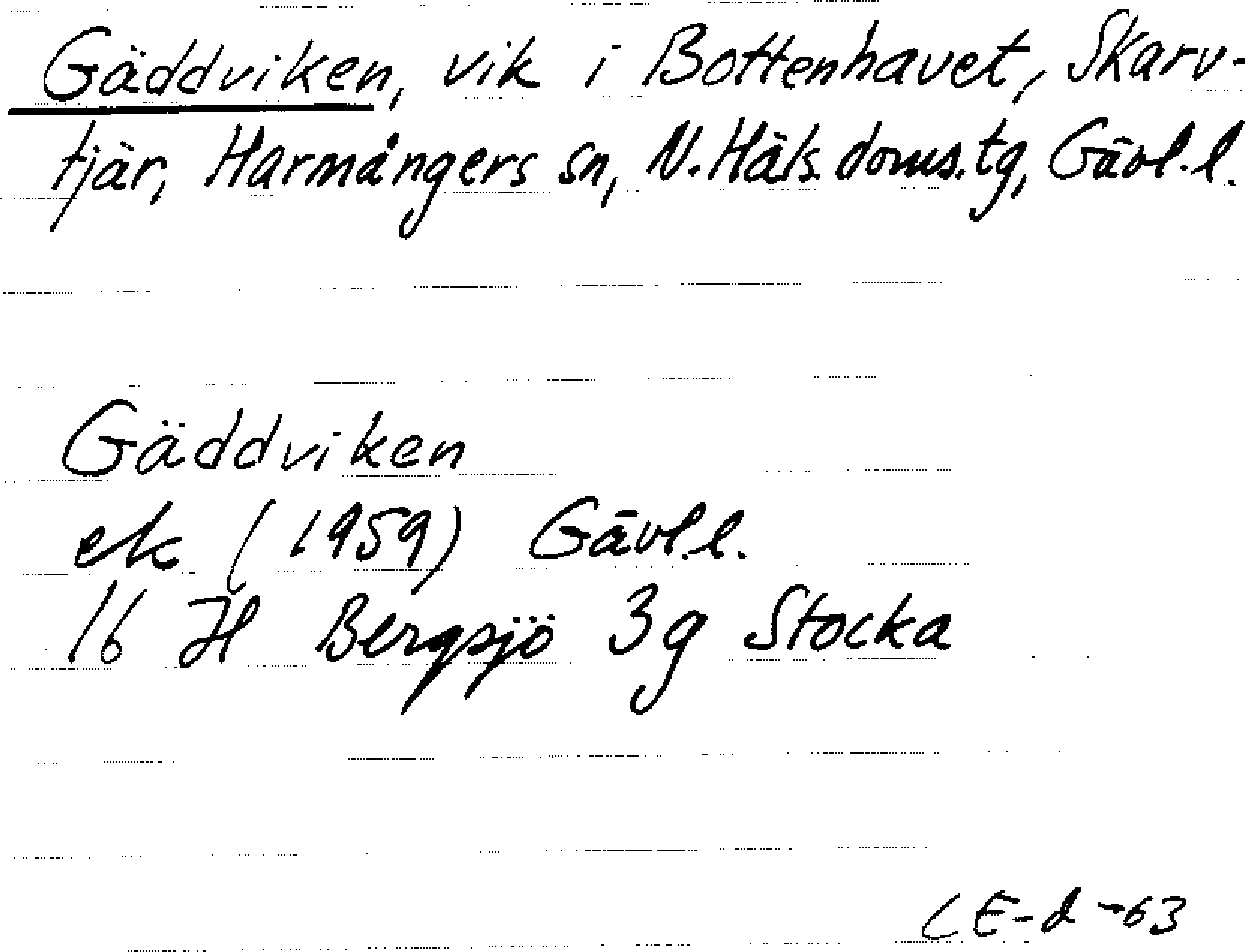 Gäddviken, vik i Bottenhavet, Skarv-
tjär, Harmångers sn, N. Häls. doms. tg, Gävl. l.
Gäddviken
ek (1959) Gävl. l.
16 H Bergsjö 3g Stocka
CE-d -63